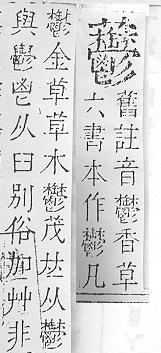 舊註音鬱香草
六書本作鬱凡
鬱金草草水鬱茂𠀤从鬱
與鬱鬯从臼別俗加艸非